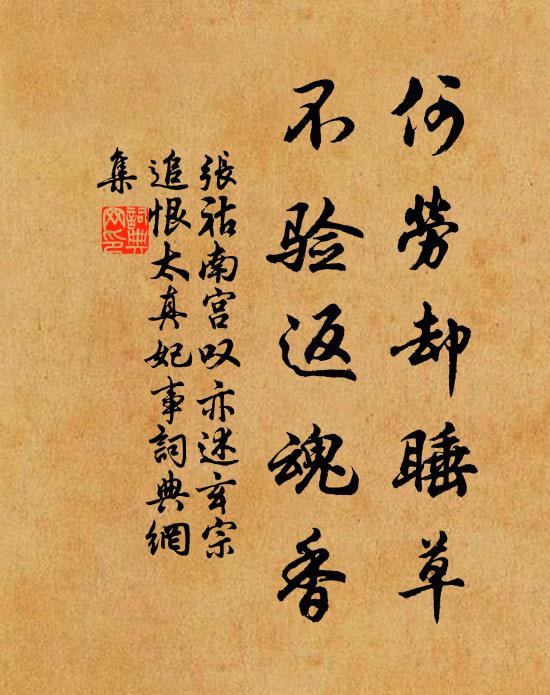 何勞却睡草
不验返魂香
張祜南宫叹亦述玄宗
追恨太真妃事詞典網
集